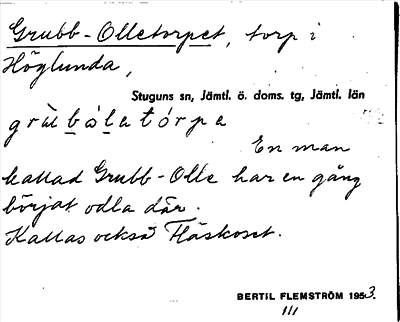 Grubb-Olletorpet, torp i
Höglunda,
Stuguns sn, Jämtl. ö. doms. tg, Jämtl. län
grùbə̀lɛtórpɛ
En man
kallad Grubb-Olle har en gång
börjat odla där.
Kallas också Fläskoset.
BERTIL FLEMSTRÖM 1953.